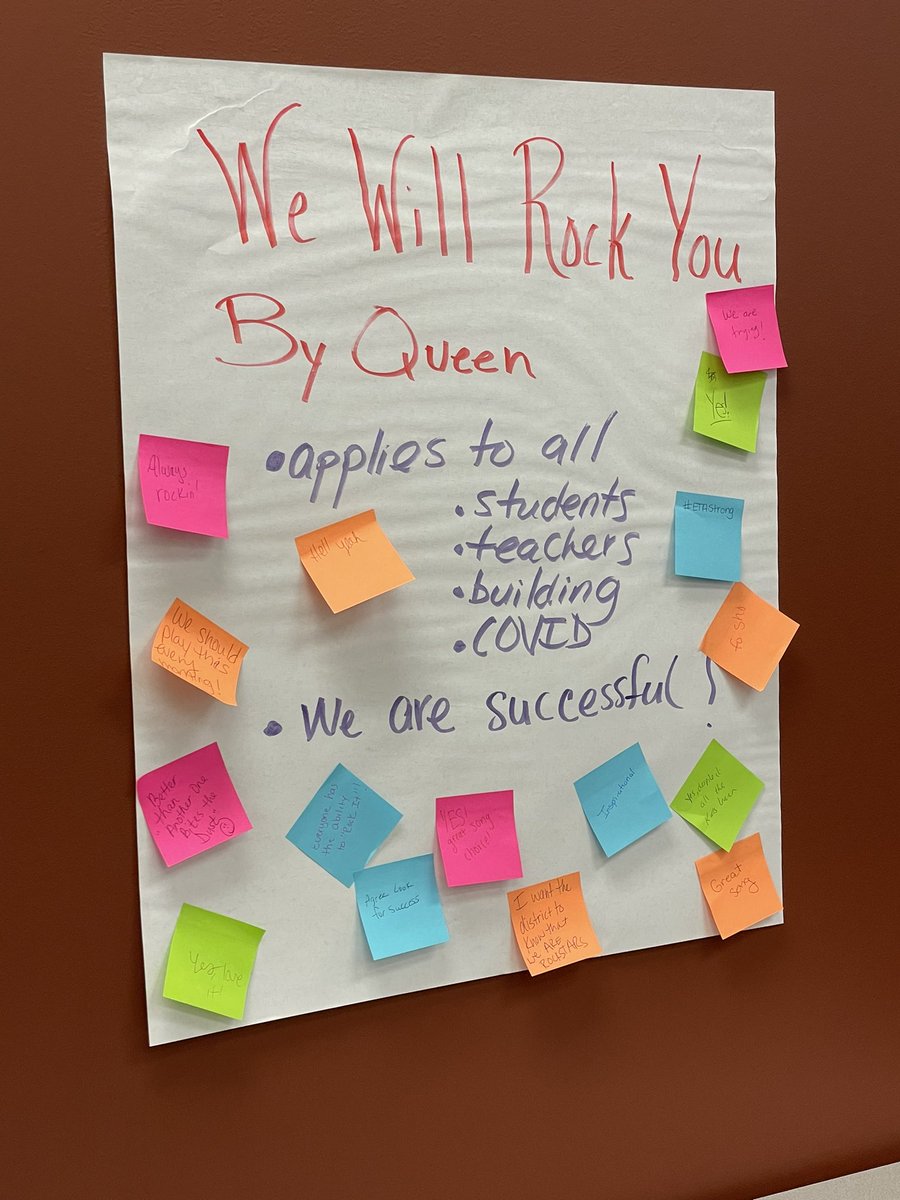 We Will Rock You
By Queen
• applies to all
• students
• teachers
• building
• COVID
• We are successful!
We are
trying!
Yes!
Always
rockin!
Hell yeah
#ETAStrong
fo sho
We should
play this
every
morning!
Better
than
"Another One
Bites the
Dust" ☺
Everyone has
the ability
to "Rock It"!
YES!
great song
choice!
Inspirational
Yes,
all the
Agree Look
for success
I want the
district to
know that
we ARE
ROCKSTARS
Great
song
Yes, love
it!